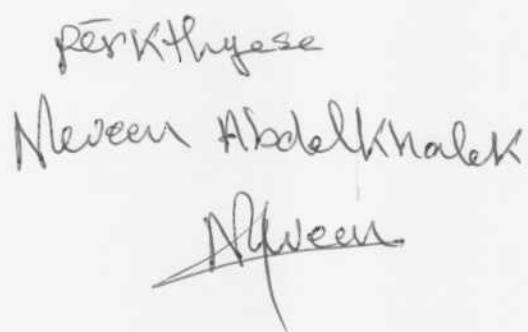 Përkthyese
Neveen Abdelkhalek
Neveen